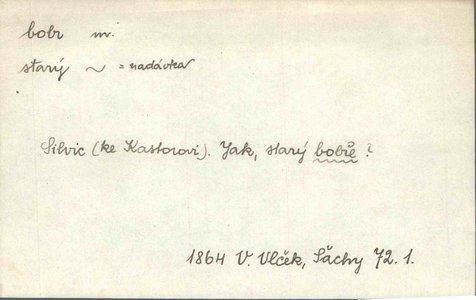 bobr m.
starý ~ = nadávka
Silvic (ke Kastorovi). Jak, starý bobře?
1864 V. Vlček, Šachy 72. 1.